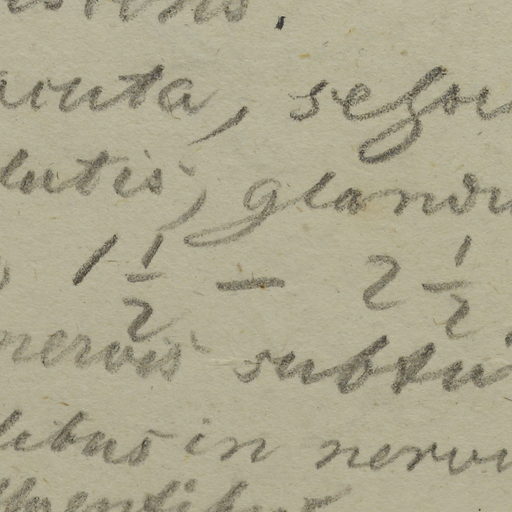 acuta, segm
lutis, glandu
1 1/2 — 2 1/2
nervis subtu
libus in nervu